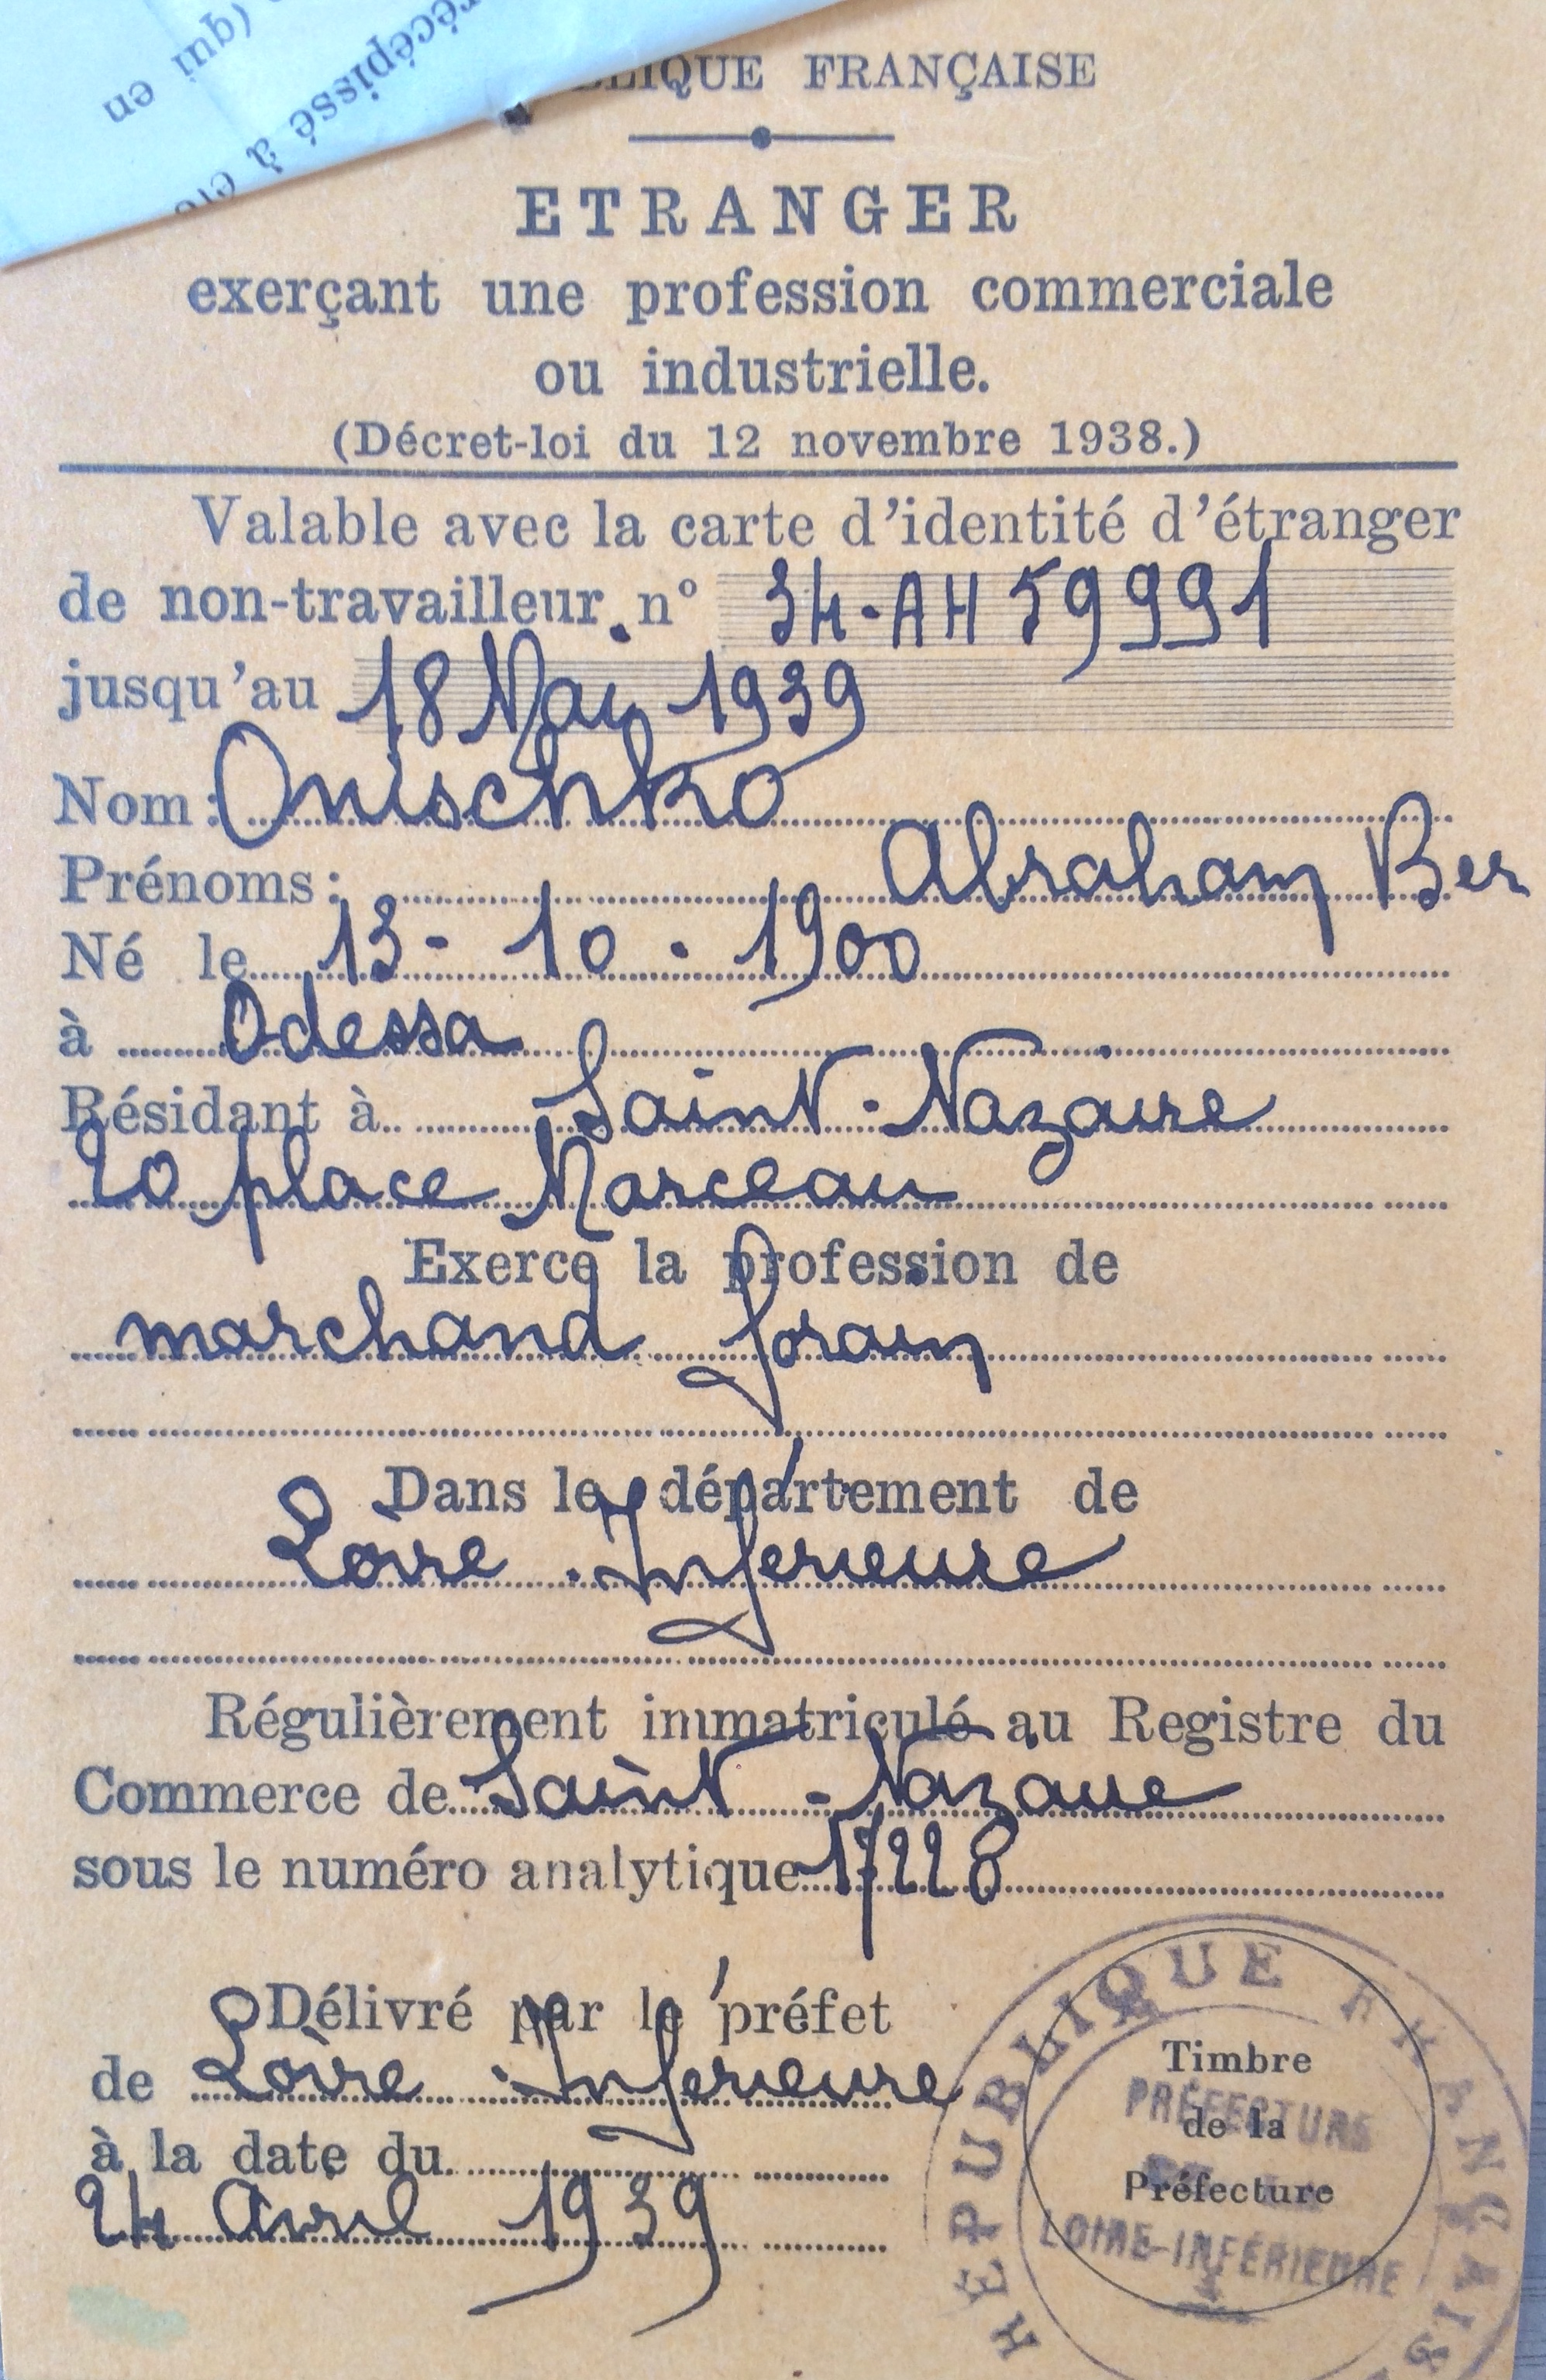 récépissé à
(qui en
BLIQUE FRANÇAISE
ETRANGER
exerçant une profession commerciale
ou industrielle.
(Décret-loi du 12 novembre 1938.)
Valable avec la carte d'identité d'étranger
de non-travailleur n° 34-AH 59991
jusqu'au 18 Mai 1939
Nom: Onischko
Prénoms: Abraham Ber
Né le 13-10.1900
à Odessa
Résidant à Saint-Nazaire
20 place Marceau
Exerce la profession de
marchand forain
Dans le département de
Loire-Inférieure
Régulièrement immatriculé au Registre du
Commerce de Saint-Nazaire
sous le numéro analytique 17228
Délivré par le préfet
de Loire-Inférieure
à la date du
24 Avril 1939
Timbre
de la
Préfecture
RÉPUBLIQUE FRANÇAISE
PRÉFECTURE
LOIRE-INFÉRIEURE